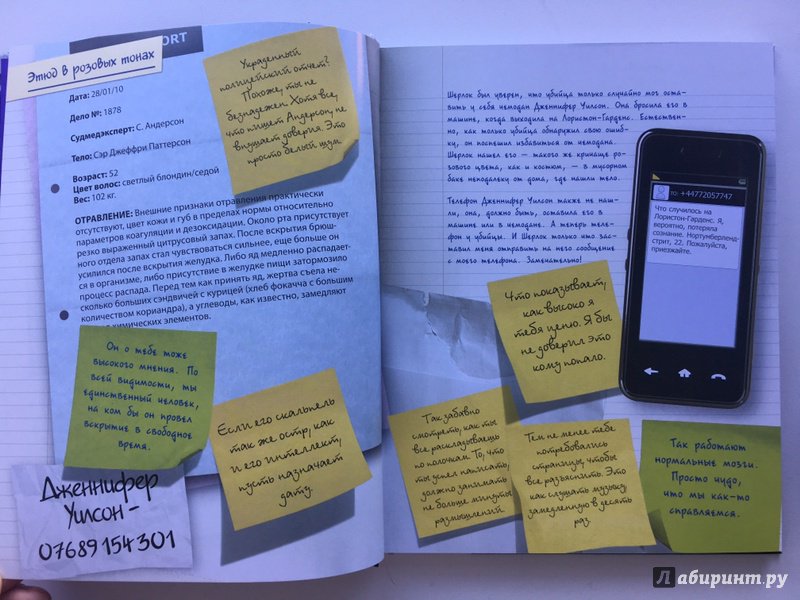 ORT
Этюд в розовых тонах
Дата: 28/01/10
Дело №: 1878
Судмедэксперт: С. Андерсон
Тело: Сэр Джеффри Паттерсон
Возраст: 52
Цвет волос: светлый блондин/седой
Вес: 102 кг.
ОТРАВЛЕНИЕ: Внешние признаки отравления практически
отсутствуют, цвет кожи и губ в пределах нормы относительно
параметров коагуляции и дезоксидации. Около рта присутствует
резко выраженный цитрусовый запах. После вскрытия брюш-
ного отдела запах стал чувствоваться сильнее, еще больше он
усилился после вскрытия желудка. Либо яд медленно распадает-
ся в организме, либо присутствие в желудке пищи затормозило
процесс распада. Перед тем как принять яд, жертва съела не-
сколько больших сэндвичей с курицей (хлеб фокачча с большим
количеством кориандра), а углеводы, как известно, замедляют
химических элементов.
Украденный
полицейский отчет?
Похоже, ты не
безнадежен. Хотя все,
что пишет Андерсон, не
внушает доверия. Это
просто белый шум.
Он о тебе тоже
высокого мнения. По
всей видимости, ты
единственный человек,
на ком бы он провел
вскрытие в свободное
время.
Если его скальпель
так же остр, как
и его интеллект,
пусть назначает
дату.
Дженнифер
Уилсон –
07689154301
Шерлок был уверен, что убийца только случайно мог оста-
вить у себя чемодан Дженнифер Уилсон. Она бросила его в
машине, когда выходила на Лористон-Гарденс. Естествен-
но, как только убийца обнаружил свою ошиб-
ку, он поспешил избавиться от чемодана.
Шерлок нашел его — такого же кричаще ро-
зового цвета, как и костюм, — в мусорном
баке неподалеку от дома, где нашли тело.
Телефон Дженнифер Уилсон также не наш-
ли, она, должно быть, оставила его в
машине или в чемодане. А теперь теле-
фон у убийцы. И Шерлок только что зас-
тавил меня отправить на него сообщение
с моего телефона. Замечательно!
то: +44772057747
Что случилось на
Лористон-Гарденс. Я,
вероятно, потеряла
сознание. Нортумберленд-
стрит, 22. Пожалуйста,
приезжайте.
Что показывает,
как высоко я
тебя ценю. Я бы
не доверил это
кому попало.
Так забавно
смотреть, как ты
все раскладываешь
по полочкам. То, что
ты успел написать,
должно занимать
не больше минуты
размышлений.
Тем не менее тебе
потребовались
страницы, чтобы
все разъяснить. Это
как слушать музыку,
замедленную в десять
раз.
Так работают
нормальные мозги.
Просто чудо,
что мы как-то
справляемся.
Лабиринт.ру